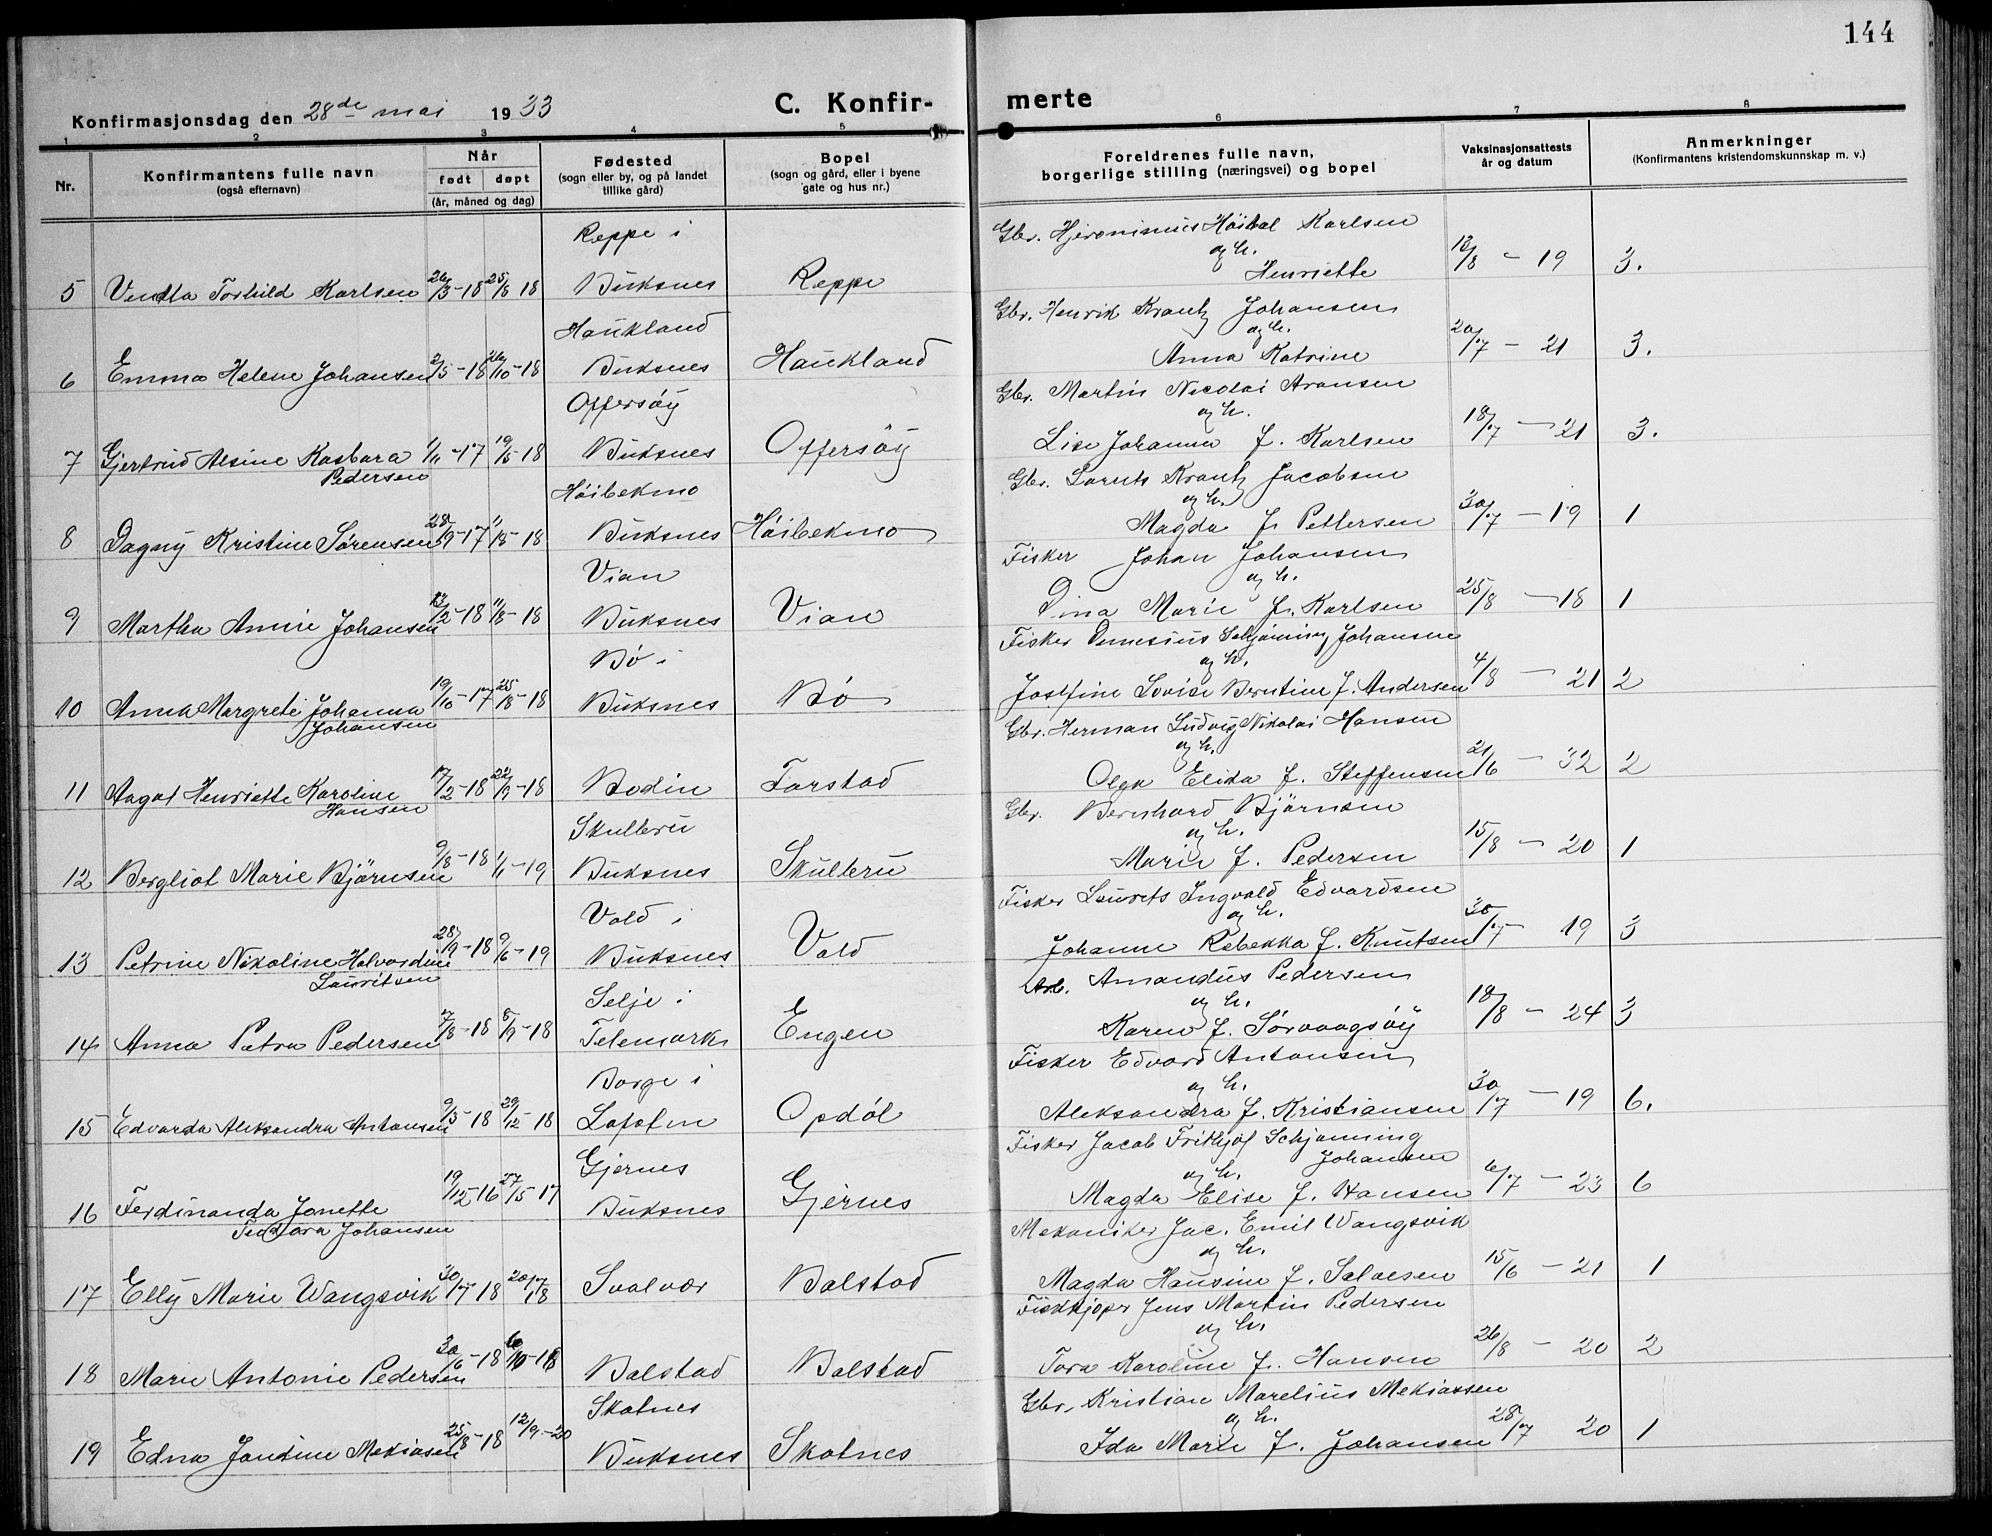 144
Konfirmasjonsdag den 28de mai 1933
C. Konfir-
merte
1 2 3 4 5 6 7 8
Nr.
Konfirmantens fulle navn
(også efternavn)
Når
født døpt
(år, måned og dag)
Fødested
(sogn eller by, og på landet
tillike gård)
Bopel
(sogn og gård, eller i byene
gate og hus nr.)
Foreldrenes fulle navn,
borgerlige stilling (næringsvei) og bopel
Vaksinasjonsattests
år og datum
Anmerkninger
(Konfirmantens kristendomskunnskap m. v.)
Reppe i
Gbr. Hjeronimus Karlsen
og h.
5 Vendla Torhild Karlsen 26/3-18 25/8 18 Buksnes Reppe Henriette 13/8 - 19 3.
Haukland
Gbr. Henrik Krantz Johansen
og h.
6 Emma Helene Johansen 2/5-18 26/10-18 Buksnes Haukland Anna Katrine 20/7 - 21 3.
Offersøy
Gbr. Martin Nicolai Aronsen
og h.
7 Gjertrud Alsine Kasbara 1/11-17 19/5-18 Buksnes Offersøy Lise Johanna f. Karlsen 18/7 - 21 3.
Pedersen
Høibekmo
Gbr. Lorents Krantz Jacobsen
og h.
8 Dagny Kristine Sørensen 28/9-17 11/8-18 Buksnes Høibekmo Magda f. Pettersen 30/7 - 19 1
Vian
Fisker Johan Johansen
og h.
9 Martha Annie Johansen 13/2-18 11/8-18 Buksnes Vian Dina Marie f. Karlsen 25/8 - 18 1
Bø i
Fisker Schjønning Johansen
og h.
10 Anna Margrete Johanna 19/10-17 25/8-18 Buksnes Bø Josefine Lovise Berntine f. Andersen 4/8 - 21 2
Johansen
Gbr. Herman Ludvig Nikolai Hansen
og h.
11 Aagot Henriette Karoline 17/2-18 22/9-18 Bodin Farstad Olga Elida f. Steffensen 21/6 - 32 2
Hansen
Skulbru
Gbr. Bernhard Bjørnsen
og h.
12 Bergliot Marie Bjørnsen 9/8-18 1/1-19 Buksnes Skulbru Marie f. Pedersen 15/8 - 20 1
Vold i
Fisker Laurits Ingvald Edvardsen
og h.
13 Petrine Nikoline Halvordine 28/9-18 9/6-19 Buksnes Vold Johanne Rebekka f. Knutsen 30/7 - 19 3
Lauritsen
Selje i
Arb. Amandus Pedersen
og h.
14 Anna Petra Pedersen 7/8-18 8/9-18 Telemark Engen Karen f. Sørvaagsøy 18/8 - 24 3
Borge i
Fisker Edvard Antonsen
og h.
15 Edvarda Aleksandra Antonsen 9/3-18 29/12 18 Lofoten Opdøl Aleksandra f. Kristiansen 30/7 - 19 6.
Gjernes
Fisker Jacob Frithjof Schjønning
Johansen
og h.
16 Ferdinanda Jonette 19/12-16 27/5-17 Buksnes Gjernes Magda Elise f. Hansen 6/7 - 23 6
Teodora Johansen
Mekaniker Jac. Emil Wangsvik
og h.
17 Elly Marie Wangsvik 30/7 18 20/7 18 Svolvær Balstad Magda Hansine f. Salvesen 15/6 - 21 1
Fiskkjøper Jens Martin Pedersen
og h.
18 Marie Antonie Pedersen 30/6-18 6/10-18 Balstad Balstad Tora Karoline f. Hansen 26/8 - 20 2
Skotnes
Gbr. Kristian Marelius Mekiassen
og h.
19 Edna Jandine Mekiasen 25/8-18 12/9-20 Buksnes Skotnes Ida Marie f. Johansen 28/7 20 1